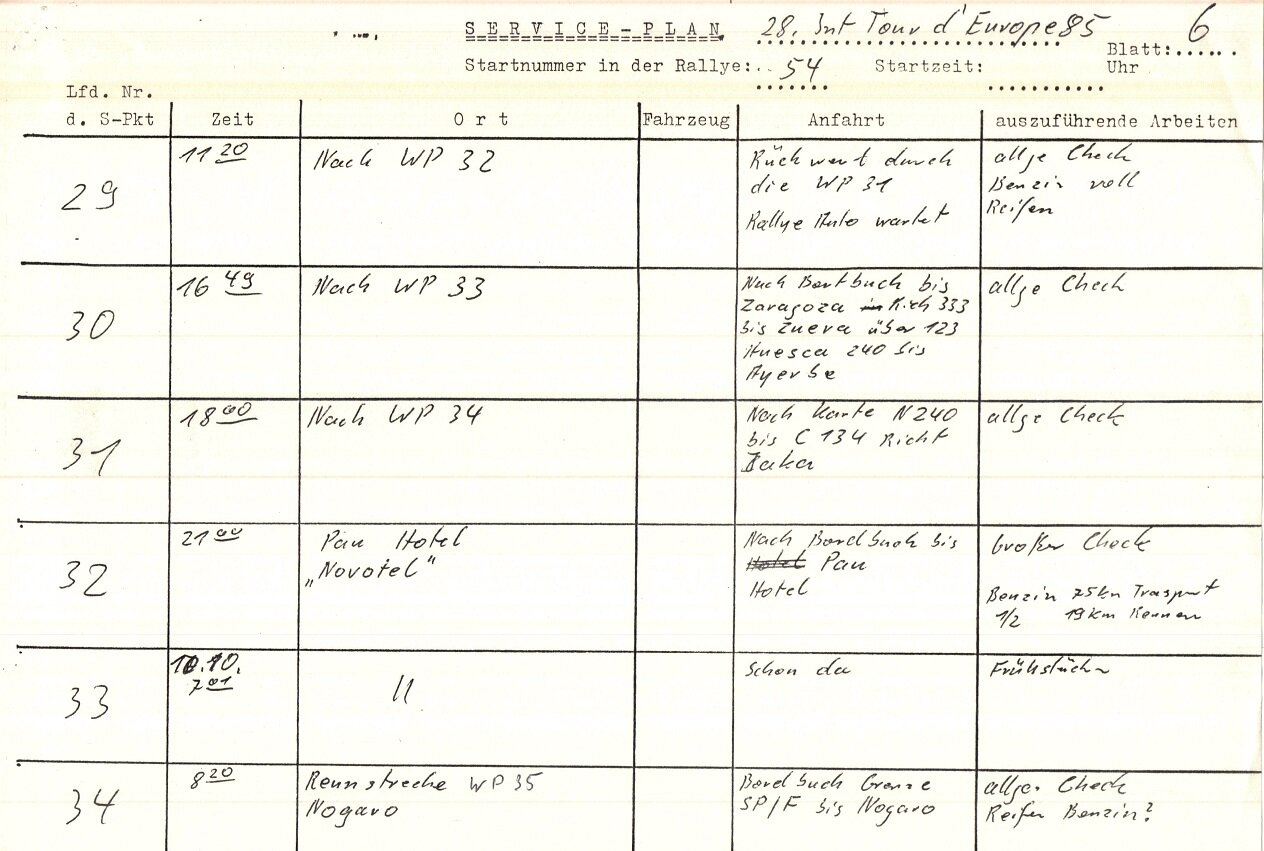 SERVICE-PLAN 28. Int Tour d'Europe 85 Blatt: 6
Startnummer in der Rallye: 54 Startzeit: Uhr
Lfd. Nr.
d. S-Pkt Zeit Ort Fahrzeug Anfahrt auszuführende Arbeiten
29 11 20 Nach WP 32 Rückwert durch allge Check
die WP 31 Benzin voll
Rallye Auto wartet Reifen
30 16 49 Nach WP 33 Nach Bortbuch bis allge Check
Zaragoza Rich 333
bis Zuera über 123
Huesca 240 bis
Ayerbe
31 18 00 Nach WP 34 Nach Karte N240 allge Check
bis C 134 Richt
Jaka
32 21 00 Pau Hotel Nach Bordbuch bis Großer Check
„Novotel" Pau
Hotel Benzin 75km Trasport
1/2 19km Rennen
33 10.10. Schon da Frühstücken
7 01 "
34 8 20 Rennstrecke WP 35 Bordbuch Grenze allge. Check
Nogaro SP/F bis Nogaro Reifen Benzin?